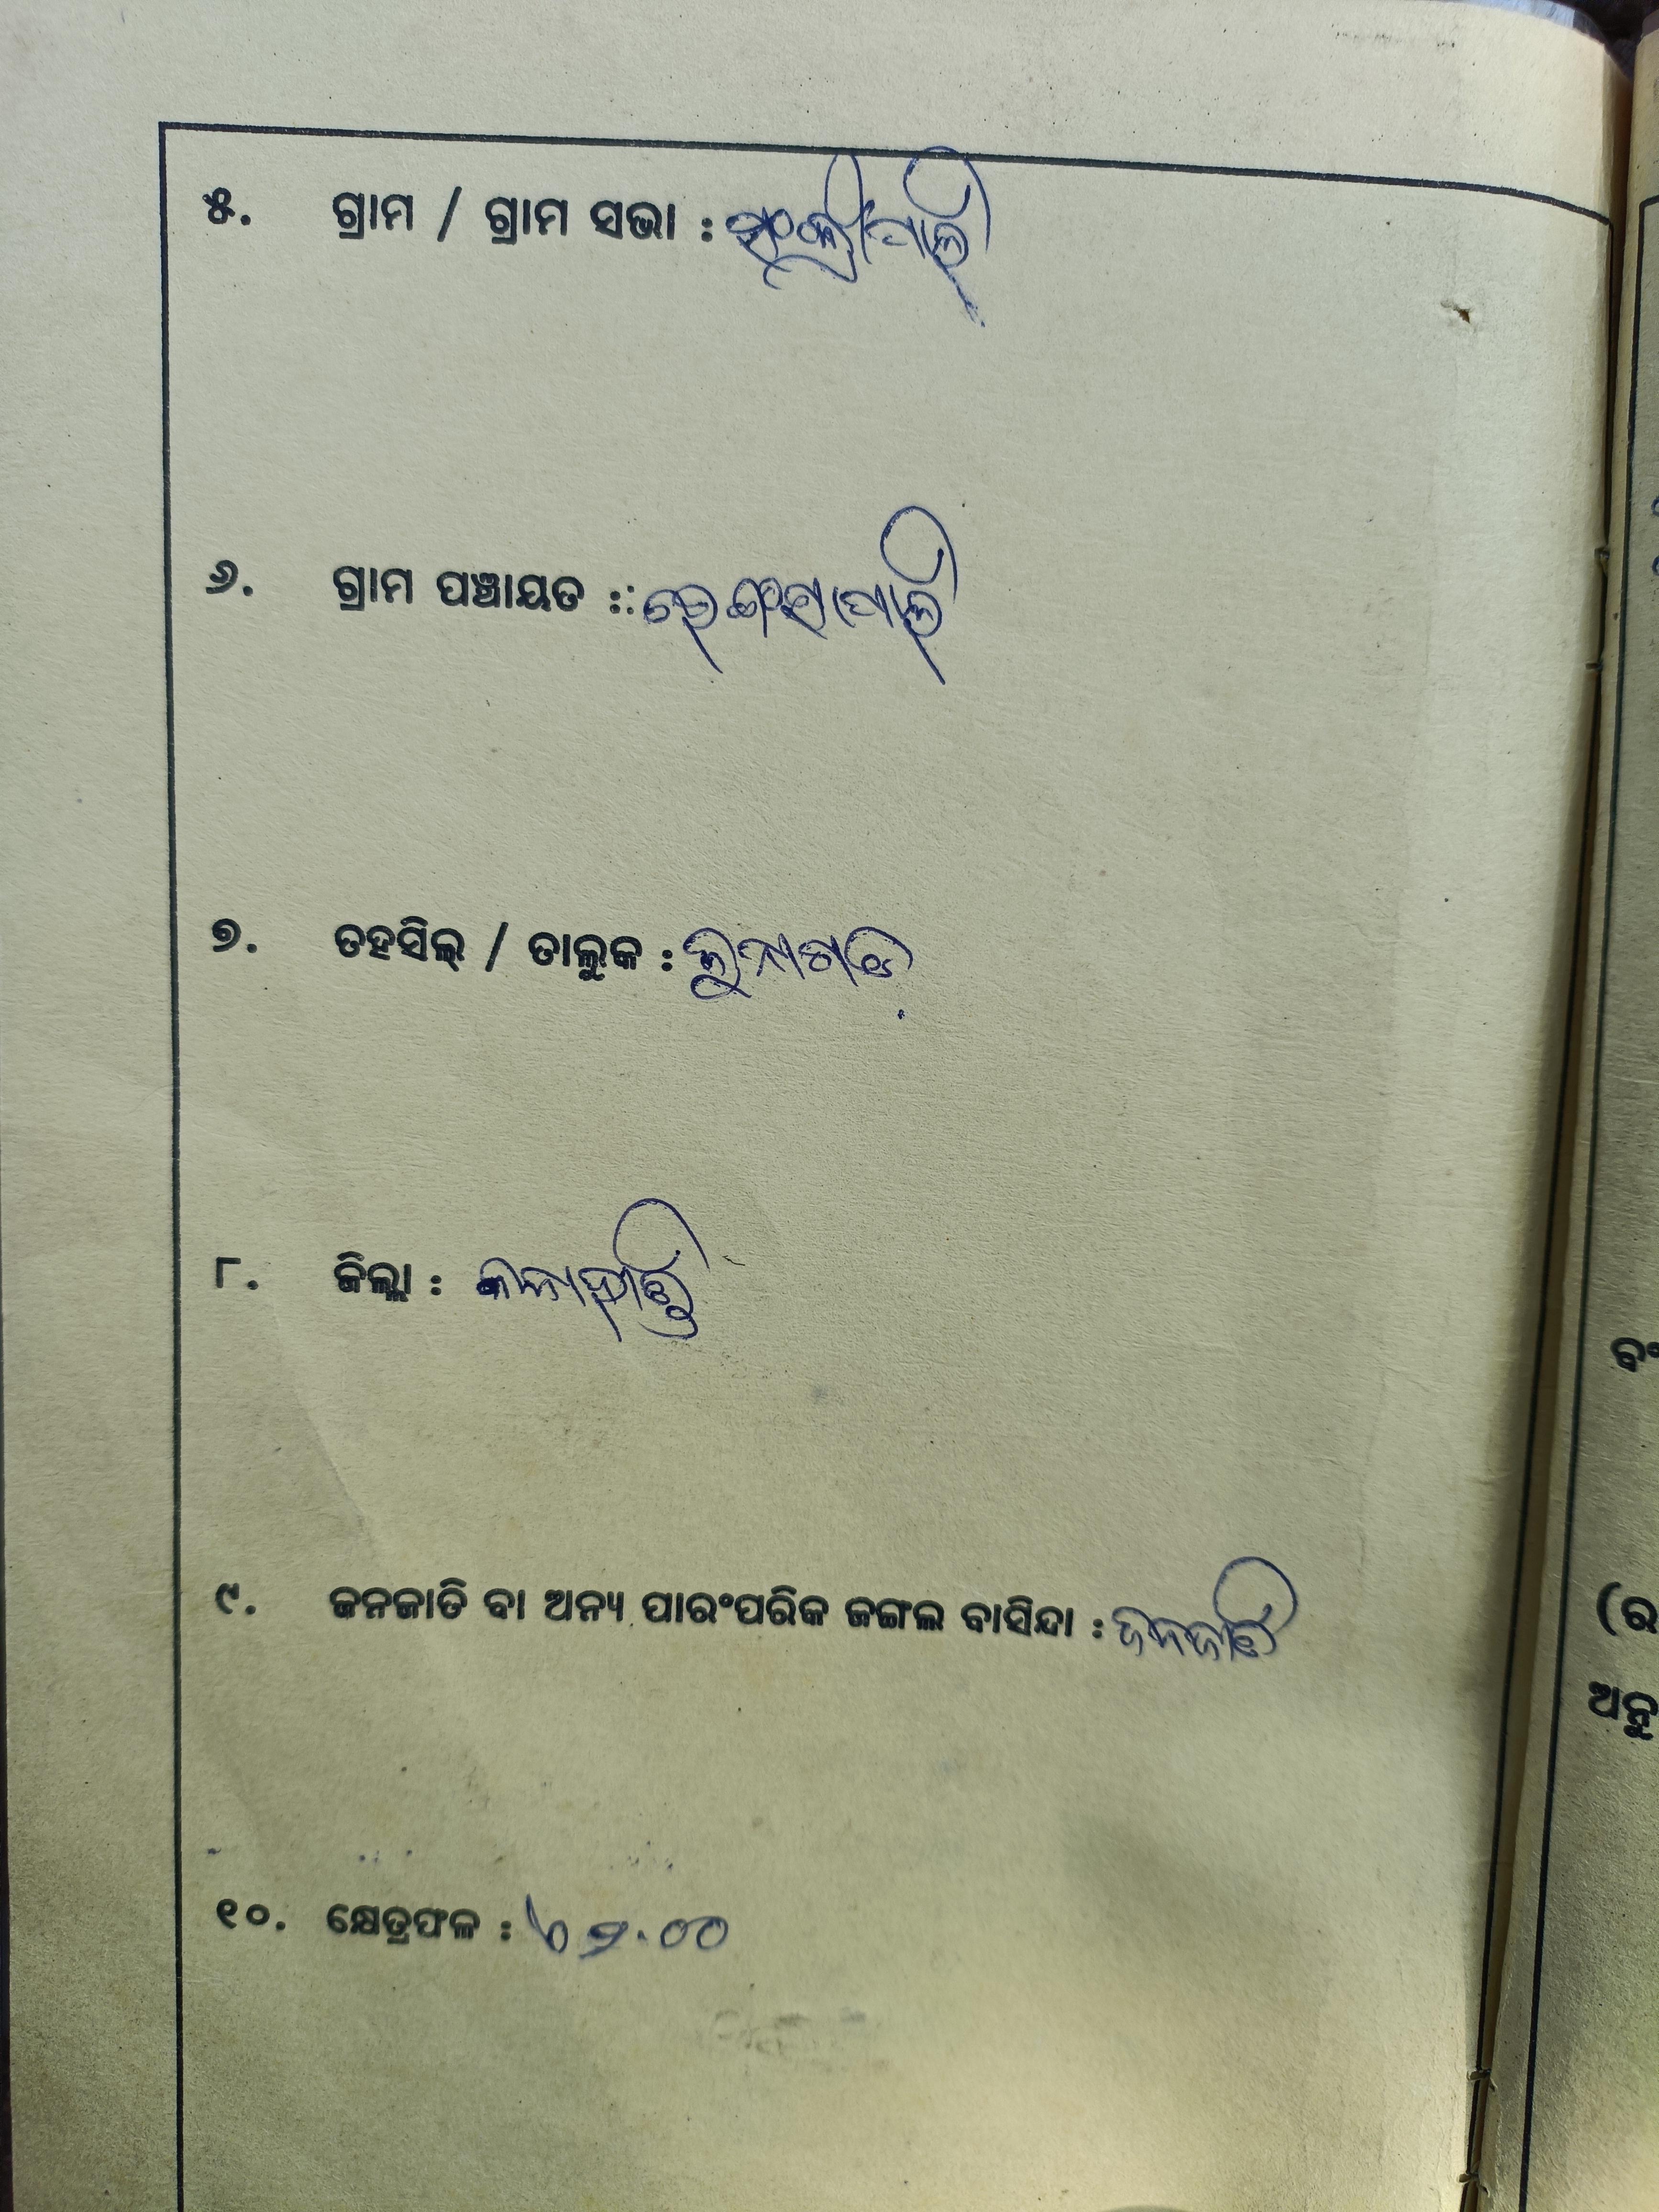 ୫. ଗ୍ରାମ / ଗ୍ରାମ ସଭା :
୬. ଗ୍ରାମ ପଞ୍ଚାୟତ :: ରେଙ୍ଗସାପାଲି
୭. ତହସିଲ୍ / ତାଲୁକ : ଜୁନାଗଡ଼
୮. ଜିଲ୍ଲା : କଳାହାଣ୍ଡି
୯. ଜନଜାତି ବା ଅନ୍ୟ ପାରଂପରିକ ଜଙ୍ଗଲ ବାସିନ୍ଦା : ଜନଜାତି
୧୦. କ୍ଷେତ୍ରଫଳ :
ବଂ
(ର
ଅନୁ